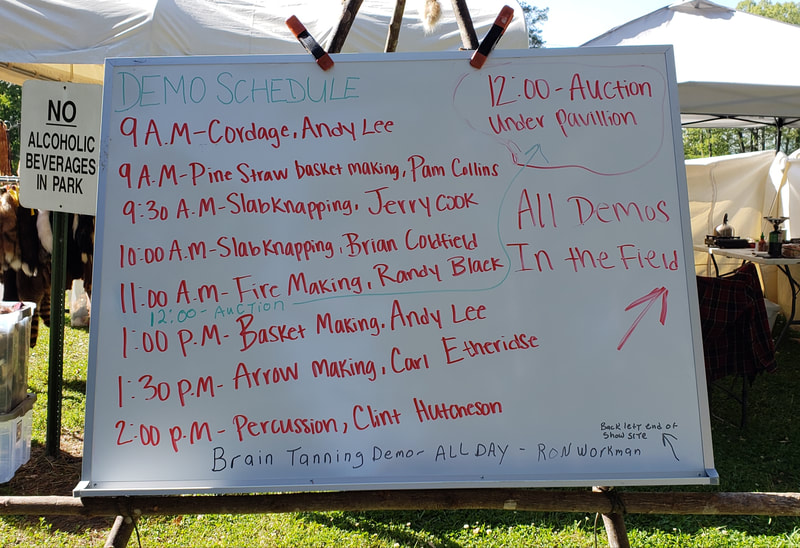 DEMO SCHEDULE
9 A.M-Cordage, Andy Lee
9 A.M-Pine Straw basket making, Pam Collins
9:30 A.M-Slabknapping, Jerry Cook
10:00 A.M-Slabknapping, Brian Coldfield
11:00 A.M-Fire Making, Randy Black
12:00-Auction
1:00 P.M-Basket Making, Andy Lee
1:30 p.m-Arrow making, Carl Etheridse
2:00 p.m-Percussion, Clint Hutcheson
Brain Tanning Demo- ALL DAY - RON Workman
12:00-Auction
Under pavillion
All Demos
In the Field
Back left end of
Show site
NO
ALCOHOLIC
BEVERAGES
IN PARK